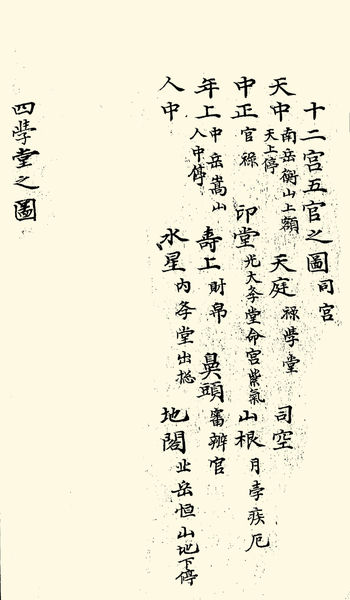 十二宮五官之圖司宮
天中南岳衡山上額天上停天庭祿學堂司空
中正官祿印堂光大斈堂命宮紫氣山根月孛疾厄
年上中岳嵩山人中停壽上財帛鼻頭審辨官
人中水星內斈堂出地閣北岳恒山地下停
四學堂之圖